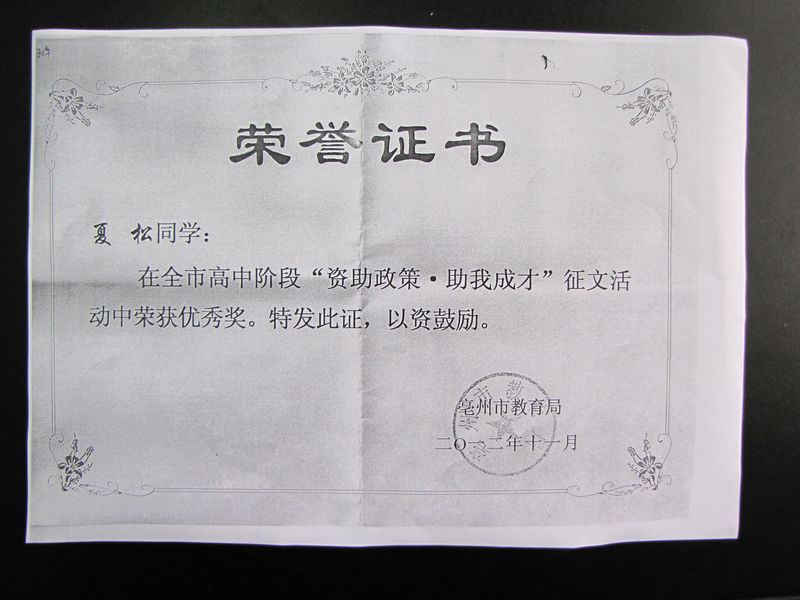 荣誉证书
夏 松同学：
在全市高中阶段“资助政策·助我成才”征文活
动中荣获优秀奖。特发此证，以资鼓励。
亳州市教育局
二〇一二年十一月